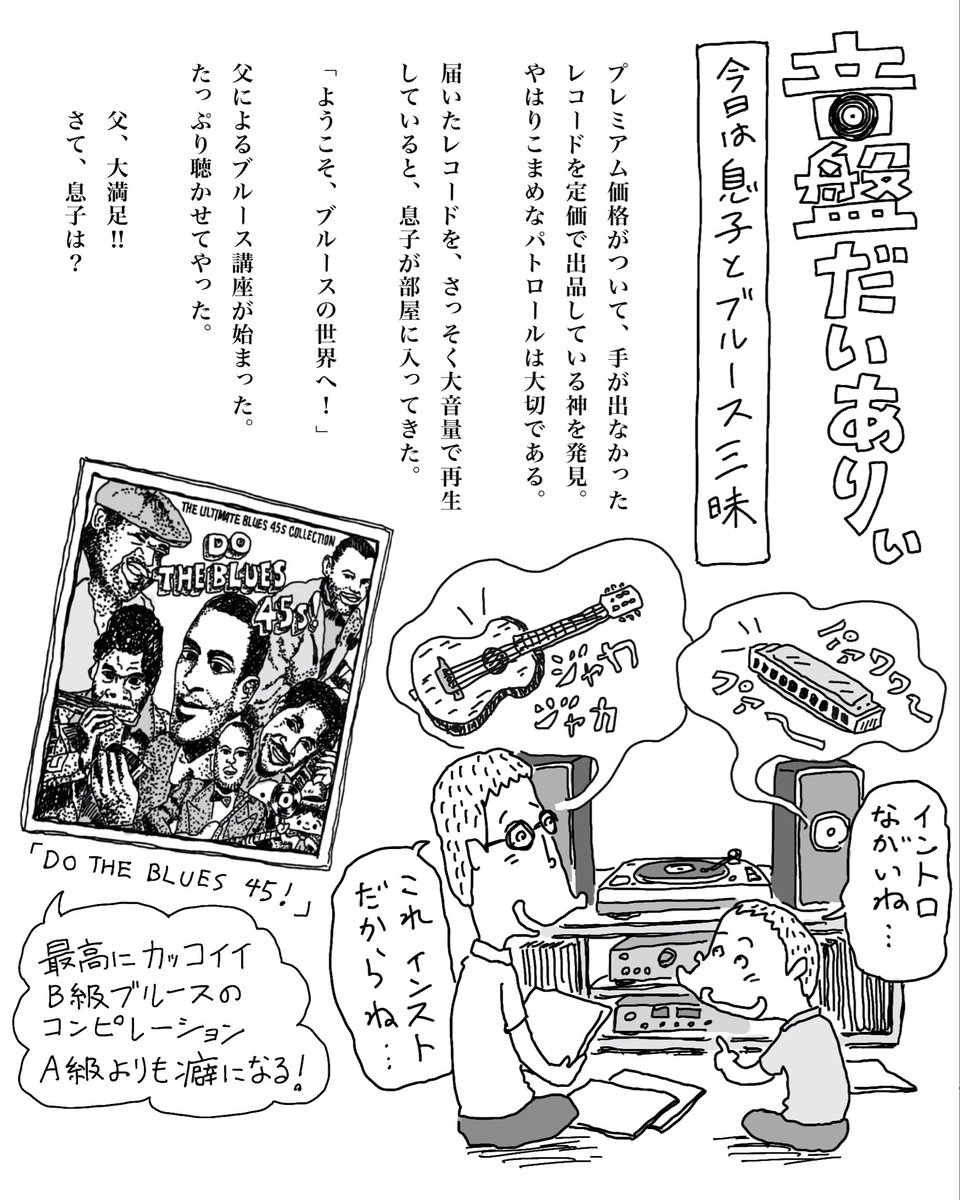 音盤だいありぃ
今日は息子とブルース三昧
プレミアム価格がついて、手が出なかった
レコードを定価で出品している神を発見。
やはりこまめなパトロールは大切である。
届いたレコードを、さっそく大音量で再生
していると、息子が部屋に入ってきた。
「ようこそ、ブルースの世界へ!」
父によるブルース講座が始まった。
たっぷり聴かせてやった。
父、大満足!!
さて、息子は?
THE ULTIMATE BLUES 45S COLLECTION
DO
THE BLUES
45s!
「DO THE BLUES 45!」
最高にカッコイイ
B級ブルースの
コンピレーション
A級よりも癖になる!
ジャカ
ジャカ
パァワワ〜
プァ〜
イントロ
ながいね…
これ インスト
だからね…